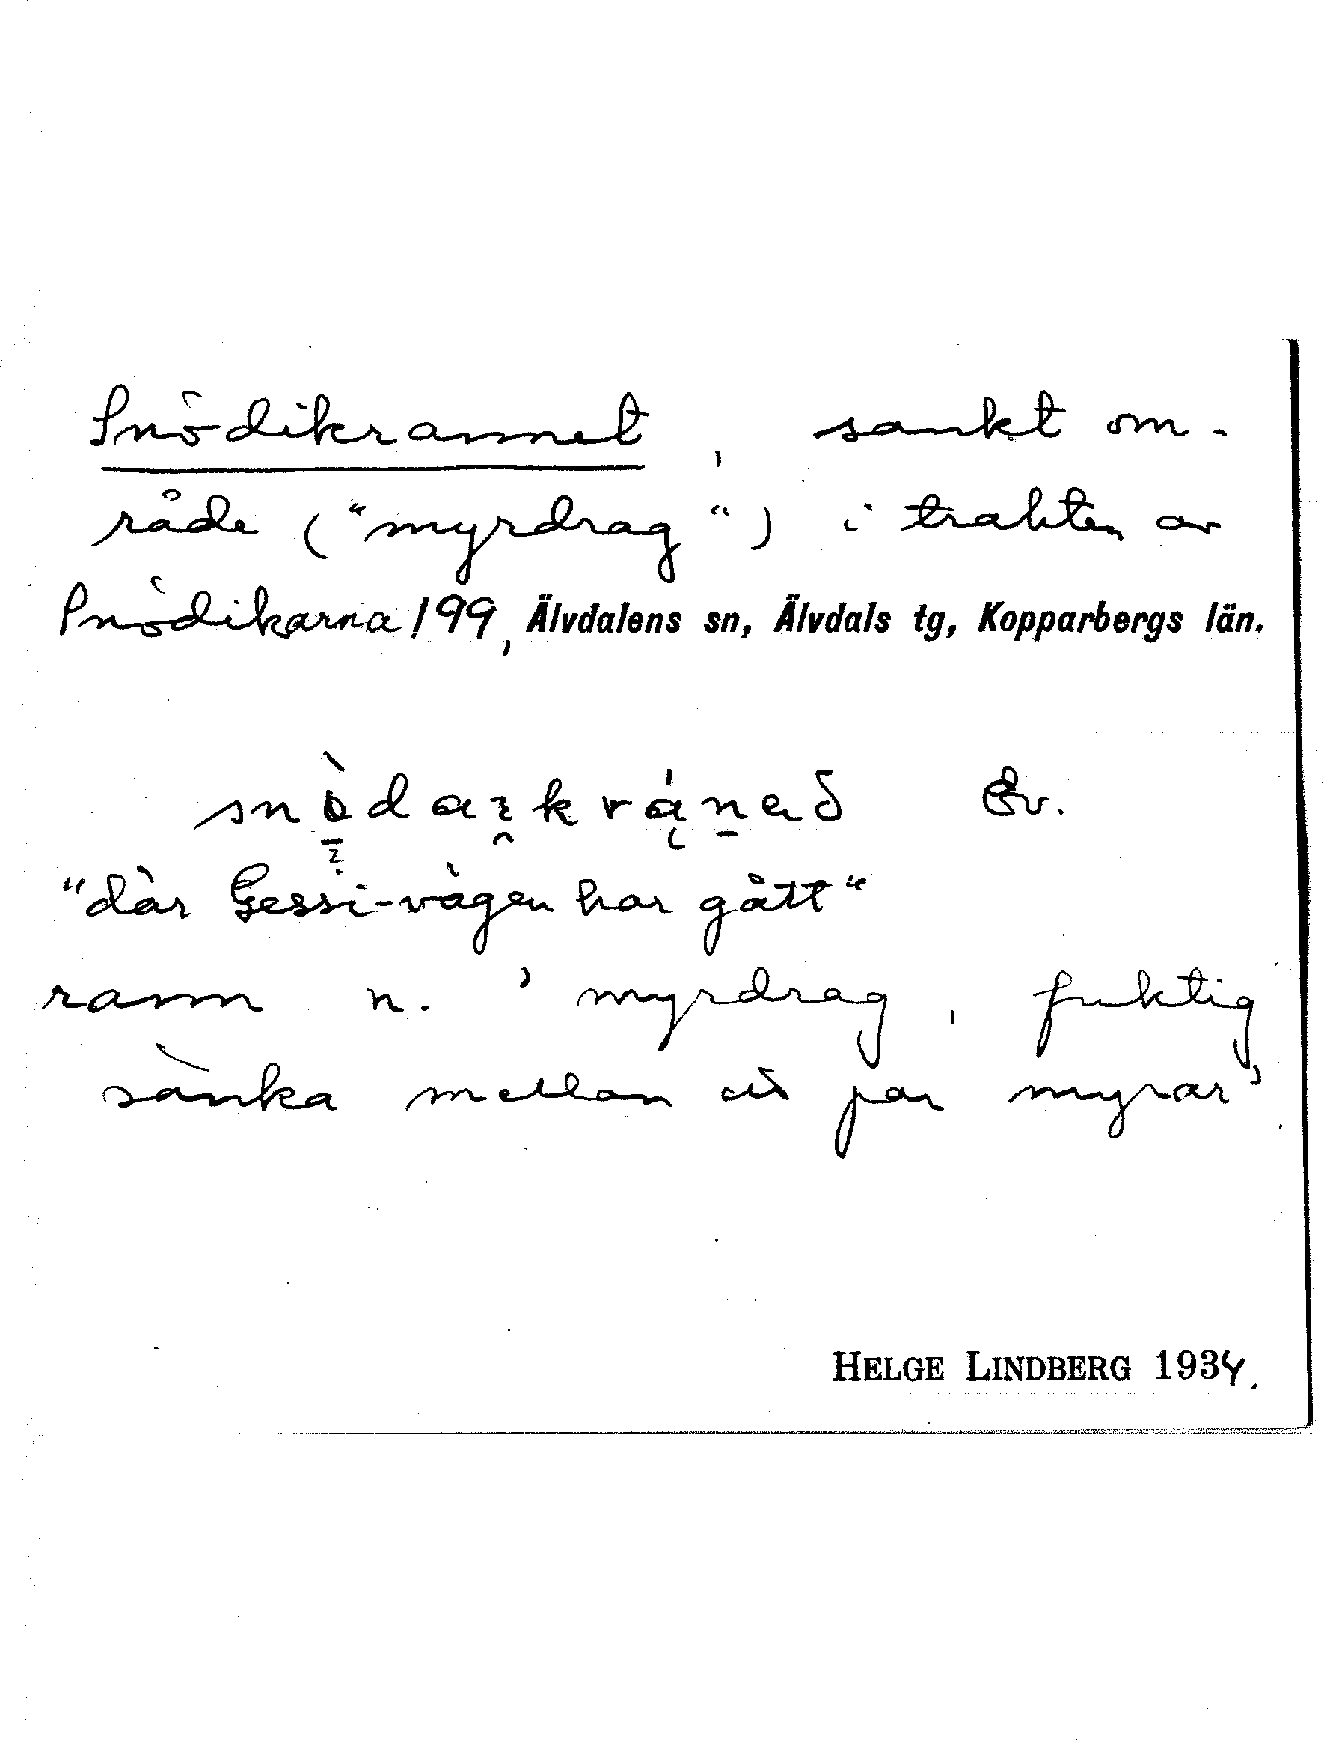 Snödikrannet, sankt om-
råde ("myrdrag") i trakten av
Snödikarna 199, Älvdalens sn, Älvdals tg, Kopparbergs län.
Öv.
"där Gessi-vägen har gått"
rann n. 'myrdrag, fuktig
sänka mellan ett par myrar'
HELGE LINDBERG 1934.